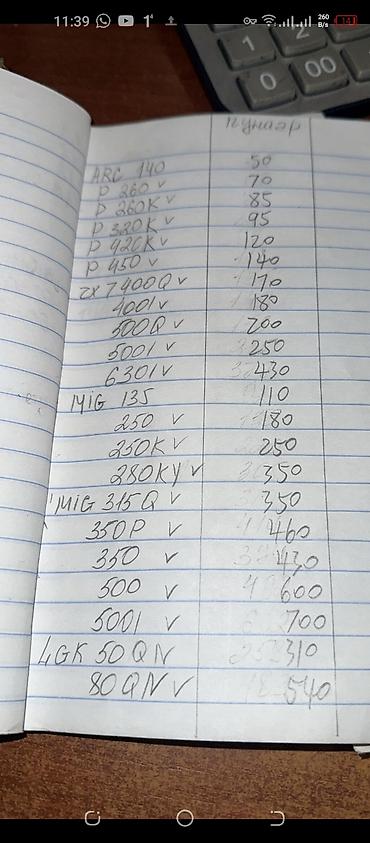 11:39 260 B/s 14
1 2 0 00
пунаэр
ARC 140 50
P 260 v 70
P 260K v 85
P 320K v 95
P 420K v 120
P 450 v 140
ZX7 400Q v 170
400I v 180
500Q v 200
500I v 250
630I v 430
MIG 135 110
250 v 180
250K v 250
280KY v 350
MIG 315Q v 350
350P v 460
350 v 430
500 v 600
500I v 700
LGK 50QN 310
80QN v 540